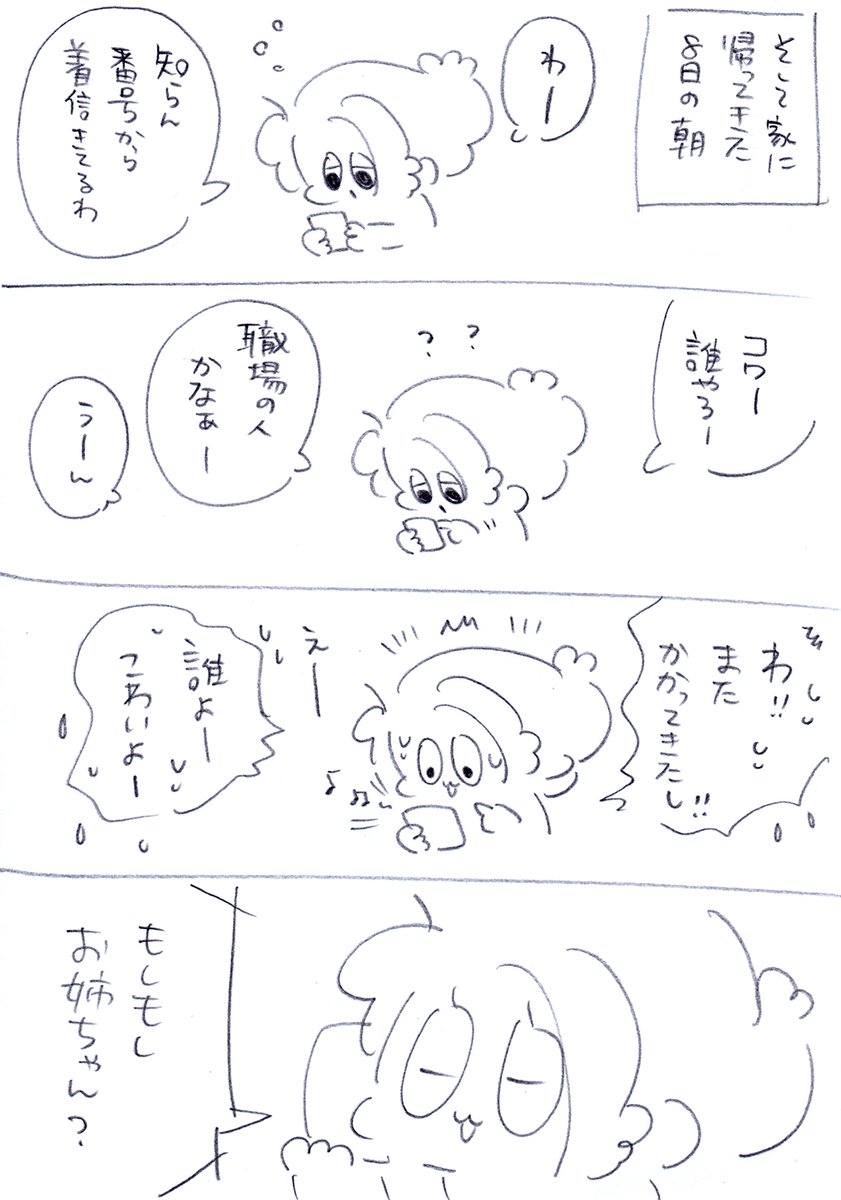 そして家に
帰ってきた
8日の朝
わー
知らん
番号から
着信きてるわ
コワー
誰やろー
職場の人
かなぁー
うーん
わ!!
また
かかってきたし!!
えー
誰よー
こわいよー
もしもし
お姉ちゃん?